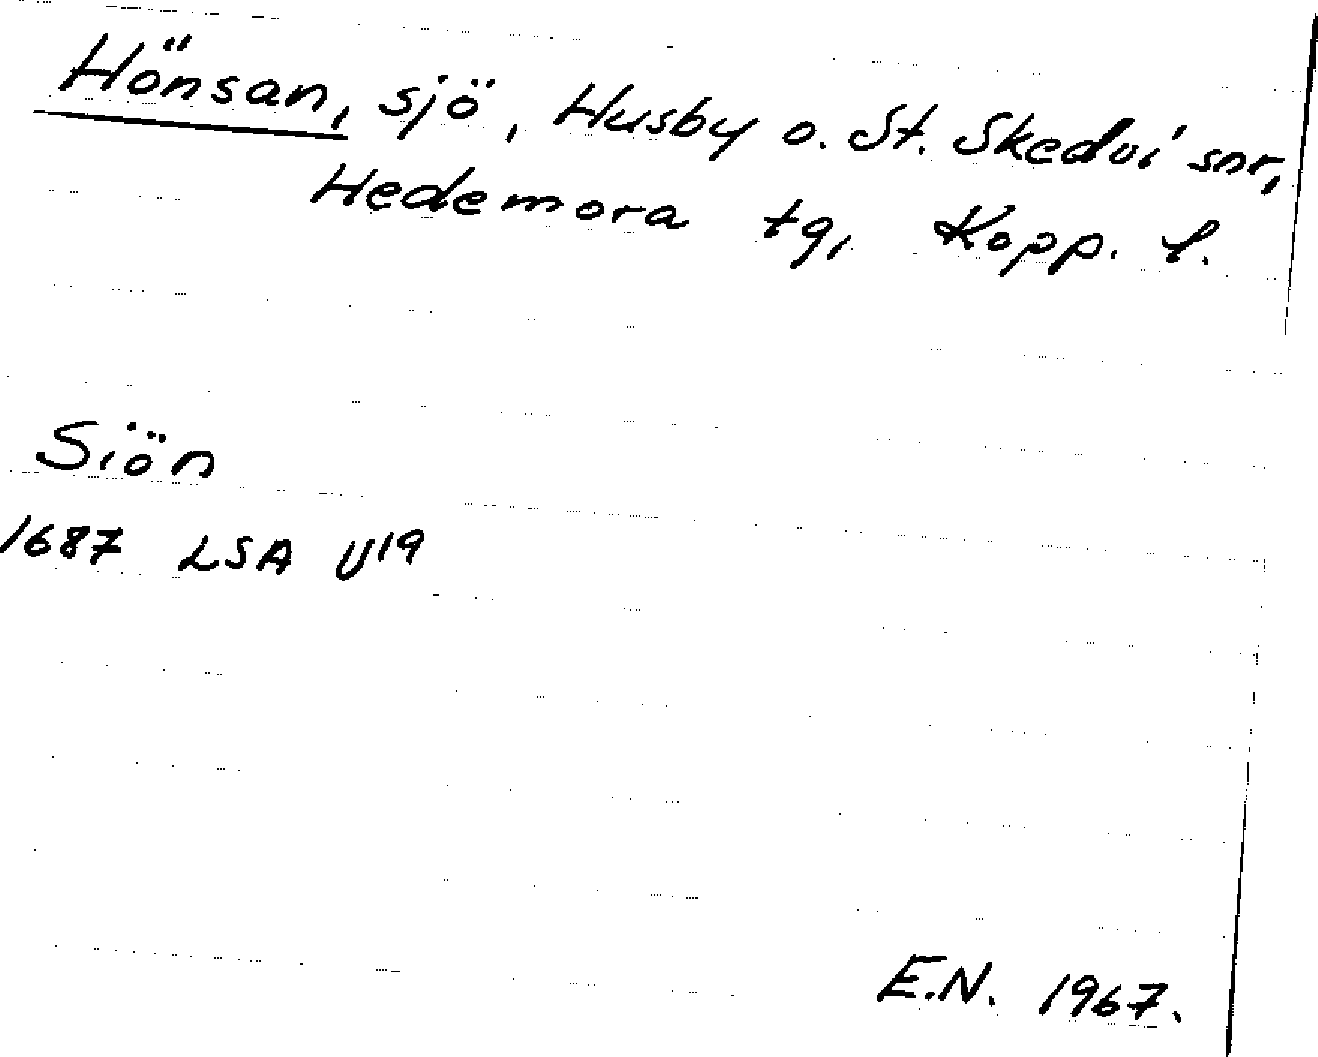 Hönsan, sjö, Husby o. St. Skedvi snr,
Hedemora tg, Kopp. l.
Siön
1687 LSA U19
E.N. 1967.